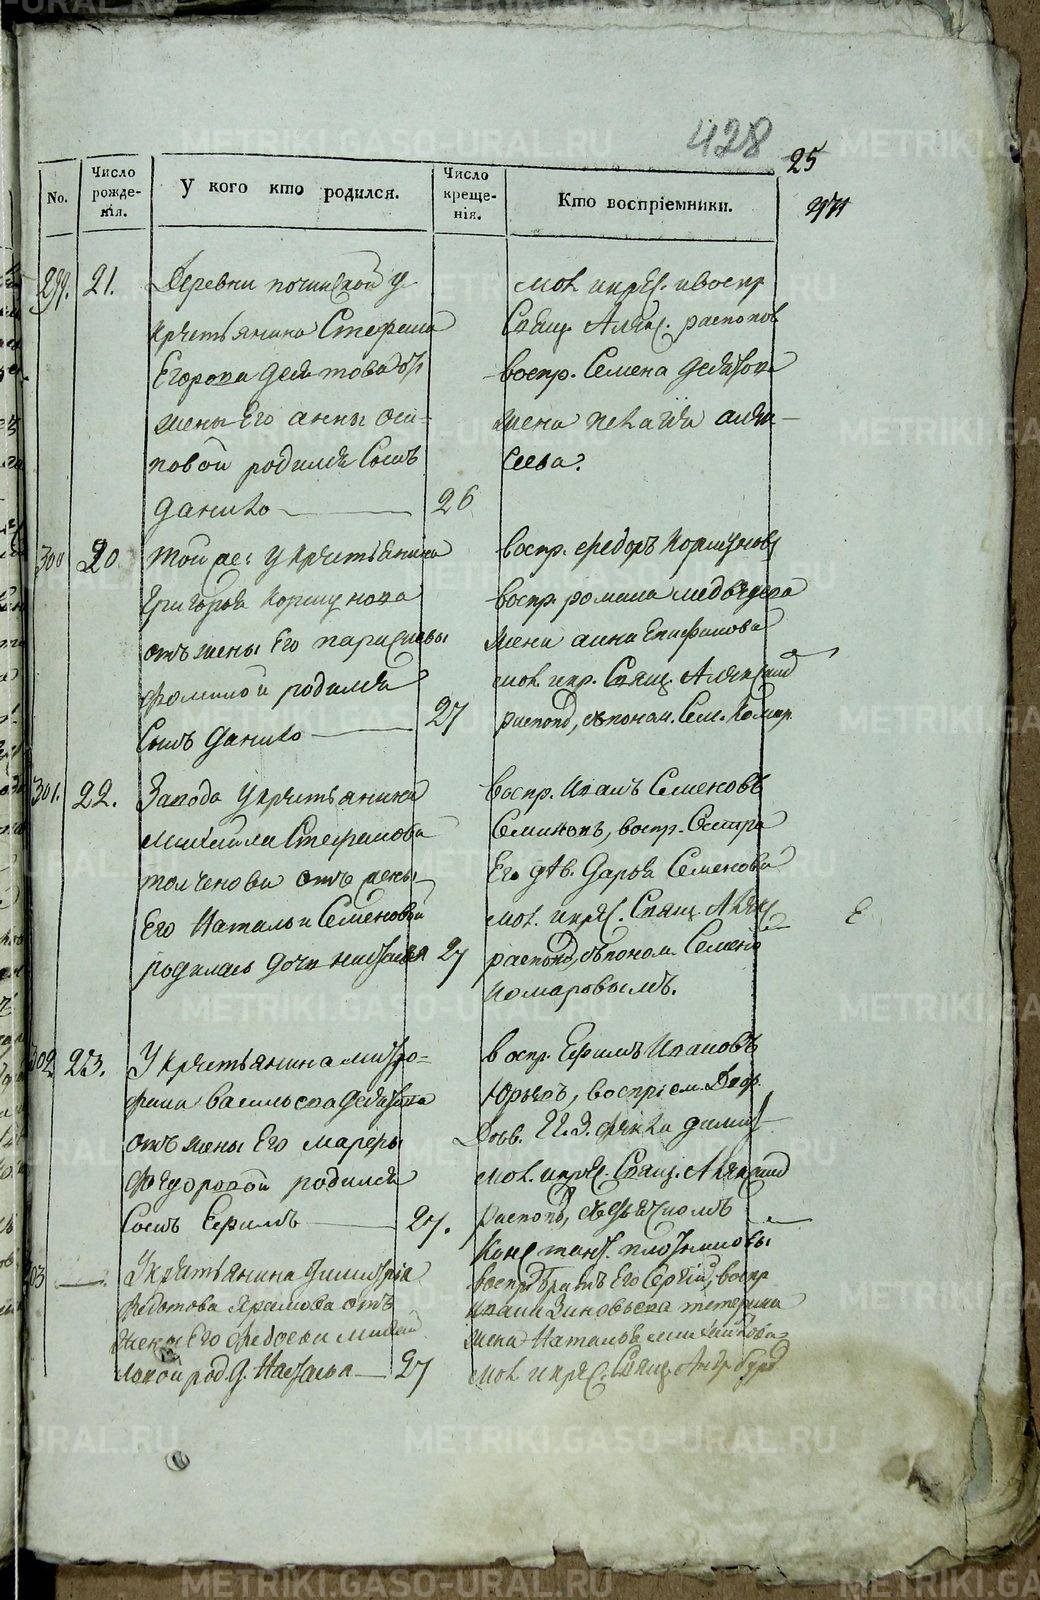 428
25
No.
Число рожде-нія.
У кого кто родился.
Число креще-нія.
Кто воспріемники.
299. 21.
Деревни починской у
крестьянина Стефана
Егорова Девятова от
жены Его анны оси-
повой родился Сынъ
данило 26
мол. и кр. и воспр
Свящ. Алек. распопов
воспр. Семена девятова
жена пелагия алек-
сеева.
300 20
той же: у крестьянина
Григорья Коршунова
отъ жены Его парасковьи
фоминой родился
Сынъ данило 27
воспр. федоръ Коршуновъ
воспр. романа медведева
жена анна Епифанова
мол. и кр. Свящ. Александ
распоп, съ поном. Сем. Комар.
301. 22.
Завода у крестьянина
михайла Стефанова
толченова отъ жены
Его Натальи Семеновой
родилась дочь наталья 27
Воспр. Иванъ Семеновъ
Семиновъ, воспр. Сестра
Его дѣв. Дарья Семенова
мол. и кр. Свящ. Алек
распоп, съ поном. Семеном
комаровымъ.
302. 23.
У крестьянина митро-
фана васильева девятова
отъ жены Его марфы
федоровой родился
Сынъ Ефимъ 27.
воспр. Ефимъ Ивановъ
Юрьевъ, воспріем.
мол. и кр. Свящ. Александ
распоп, съ дьячкомъ
Констант. плотниковы
303
У крестьянина димитрія
федотова Храмова отъ
жены Его федосьи михай
ловой род. д. Наталья 27
воспр. братъ Его Сергій, воспр
ивана Зиновьева тетерина
жена Наталья
мол. и кр. Свящ. Андр.
METRIKI.GASO-URAL.RU